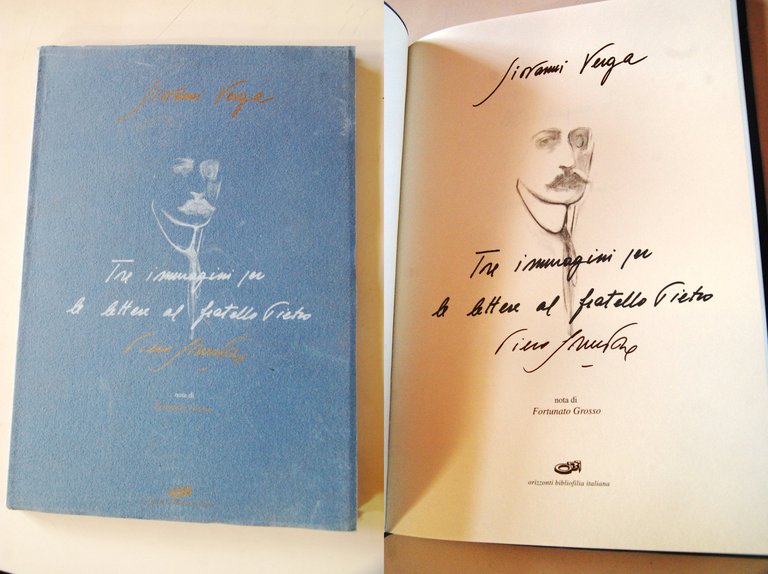 Giovanni Verga
Tre immagini per
le lettere al fratello Pietro
Piero
nota di
Fortunato Grosso
Giovanni Verga
Tre immagini per
le lettere al fratello Pietro
Piero
nota di
Fortunato Grosso
orizzonti bibliofilia italiana